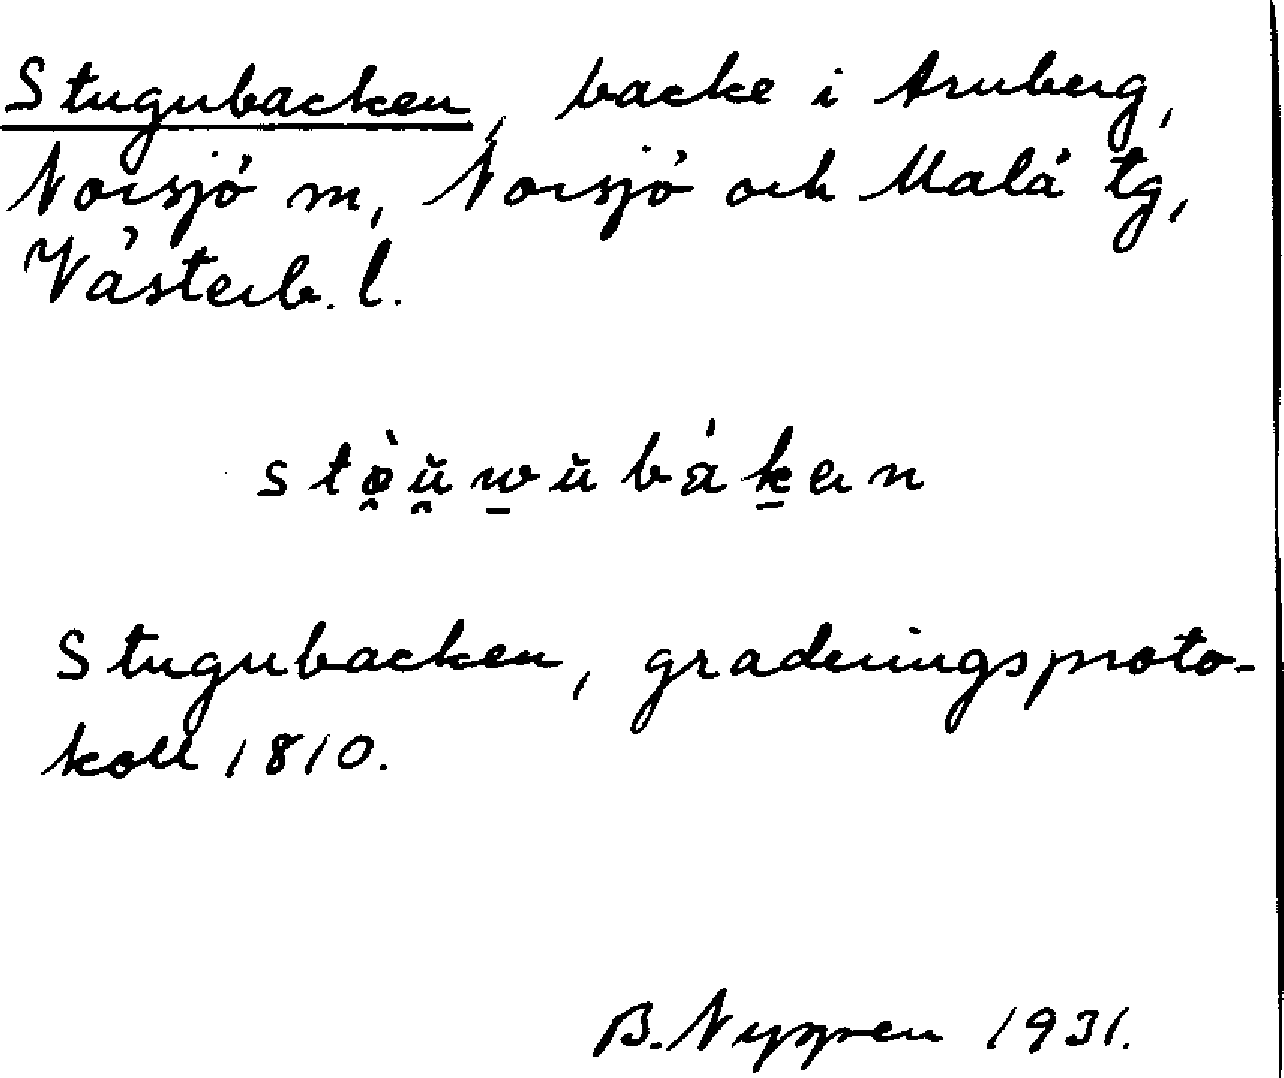 Stugubacken, backe i Aruberg,
Norsjö sn, Norsjö och Malå tg,
Västerb. l.
Stugubacken, graderingsproto-
koll 1810.
B. Nygren 1931.